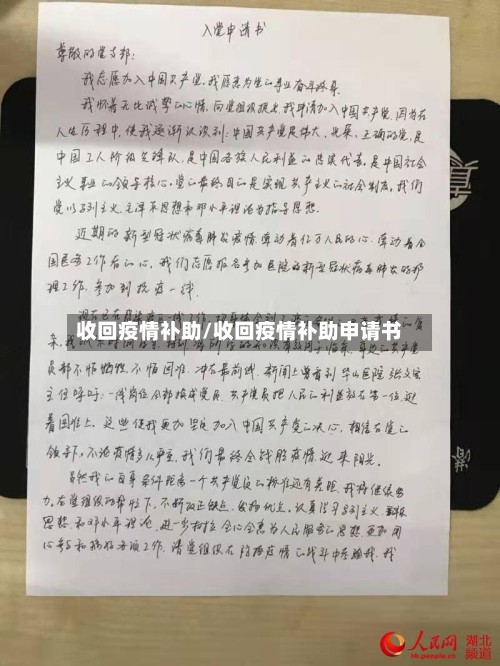 入党申请书
尊敬的党支部：
我志愿加入中国共产党，我愿意为党的事业奋斗终身。
我怀着无比诚挚的心情，向党组织提出我申请加入中国共产党，因为在
人生历程中，使我逐渐认识到：中国共产党是伟大、光荣、正确的党，是
中国工人阶级先锋队，是中国各族人民利益的忠实代表，是中国社会
主义事业的领导核心，党的最终目的是实现共产主义的社会制度。我们
党以马列主义、毛泽东思想和邓小平理论为指导思想。
近期的新型冠状病毒肺炎疫情牵动着亿万人民的心，牵动着全
国医务工作者的心，我们志愿报名参加医院的新型冠状病毒肺炎的护
理工作，参加到抗疫一线。
收回疫情补助/收回疫情补助申请书
员都不怕牺牲，不怕困难，冲在最前线，新闻上曾看到华山医院张文宏
主任呼吁：一线岗位全部换成党员，共产党员把人民的利益放在第一位，迎
着困难上，这些使我更加坚定加入中国共产党的决心，相信在党的
领导下，不论疫情多么严重，我们最终会战胜疫情，迎来阳光。
虽然我的自身条件距离一个共产党员的标准还有差距，我将继续努
力，在党组织的帮助下，不断改正缺点，发扬优点，认真学习马列主义
思想和邓小平理论，进一步树立全心全意为人民服务的思想，更加用
心学习和搞好各项工作，请党组织在防控疫情的战斗中考验我，我
人民网
湖北
频道
hb.people.cn